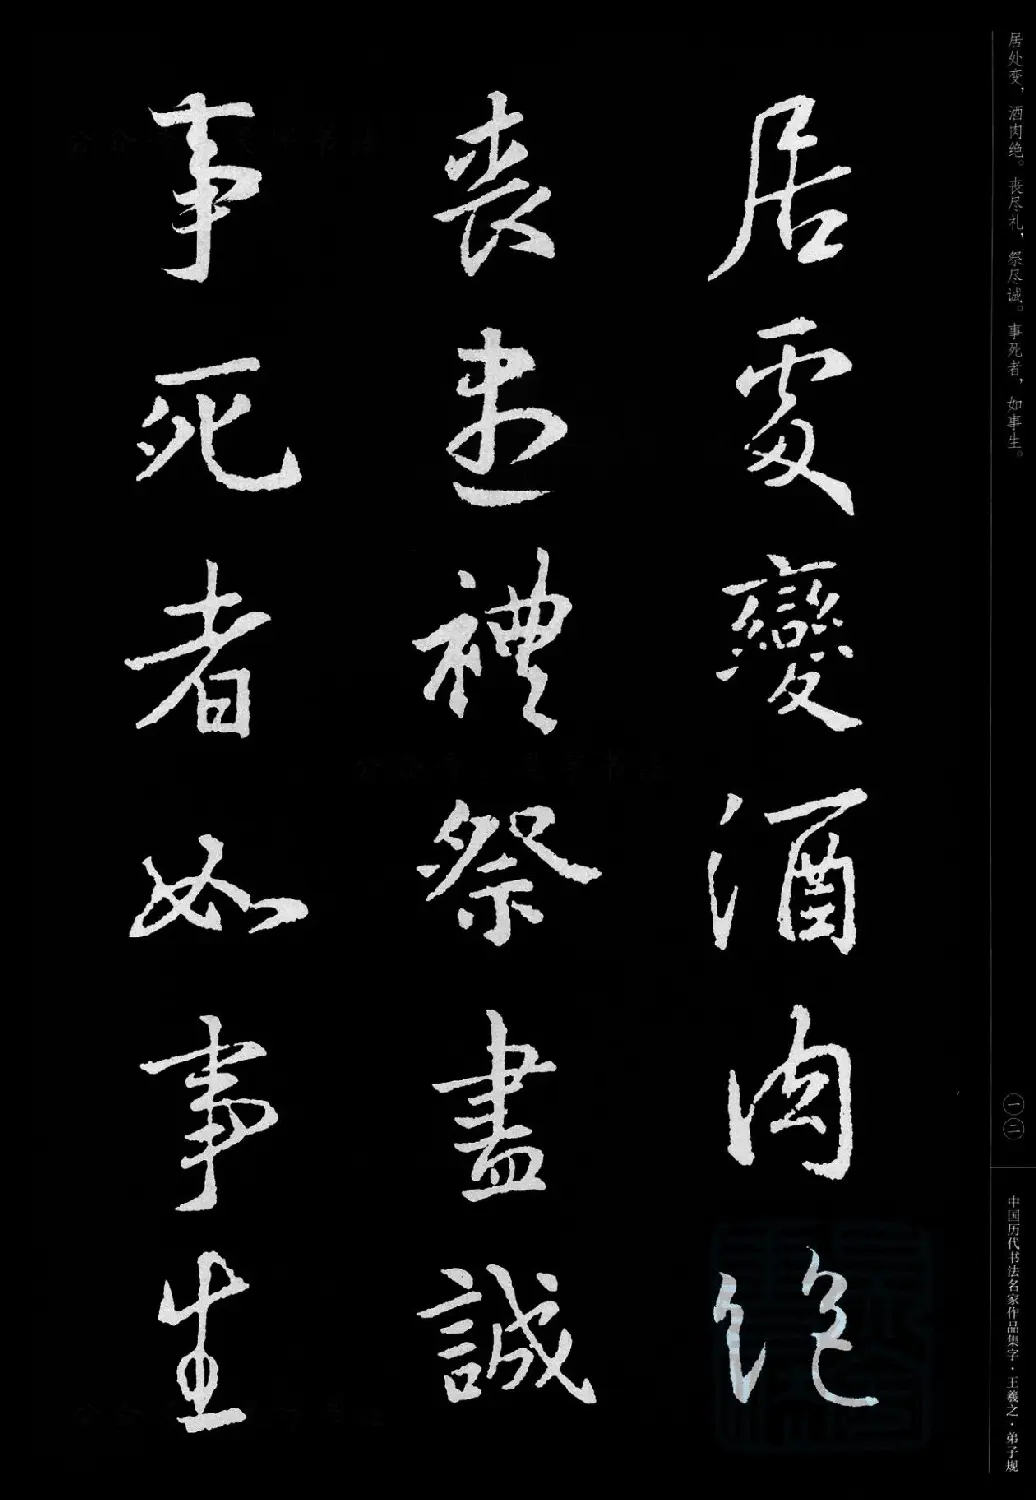 居处变，酒肉绝。丧尽礼，祭尽诚。事死者，如事生。
居處變酒肉絶
喪盡禮祭盡誠
事死者如事生
一二
中国历代书法名家作品集字·王羲之·弟子规